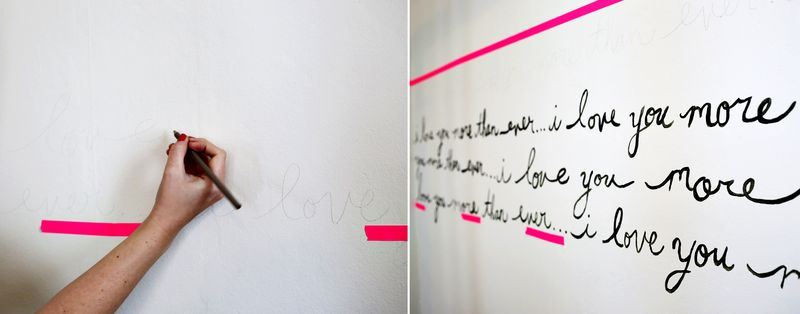 love
ever... i love
more than ever...
i love you more than ever...i love you more
you more than ever...i love you more
love you more than ever...i love you m